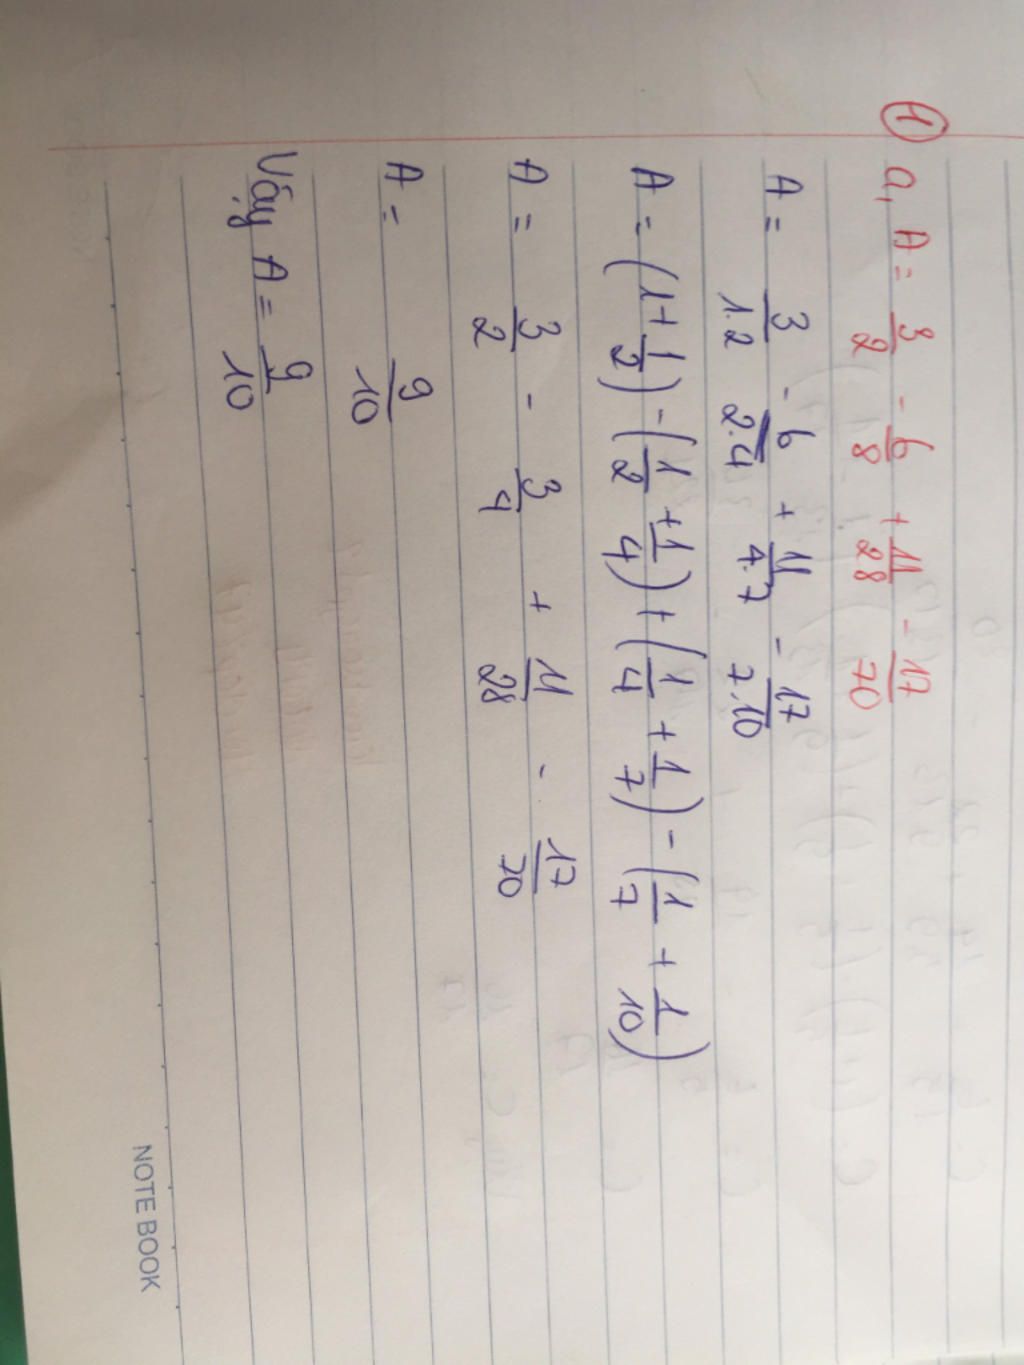 ① a, A = 3/2 - 6/8 + 11/28 - 17/70
A = 3/1.2 - 6/2.4 + 11/4.7 - 17/7.10
A = (1 + 1/2) - (1/2 + 1/4) + (1/4 + 1/7) - (1/7 + 1/10)
A = 3/2 - 3/4 + 11/28 - 17/70
A = 9/10
Vậy A = 9/10
NOTE BOOK